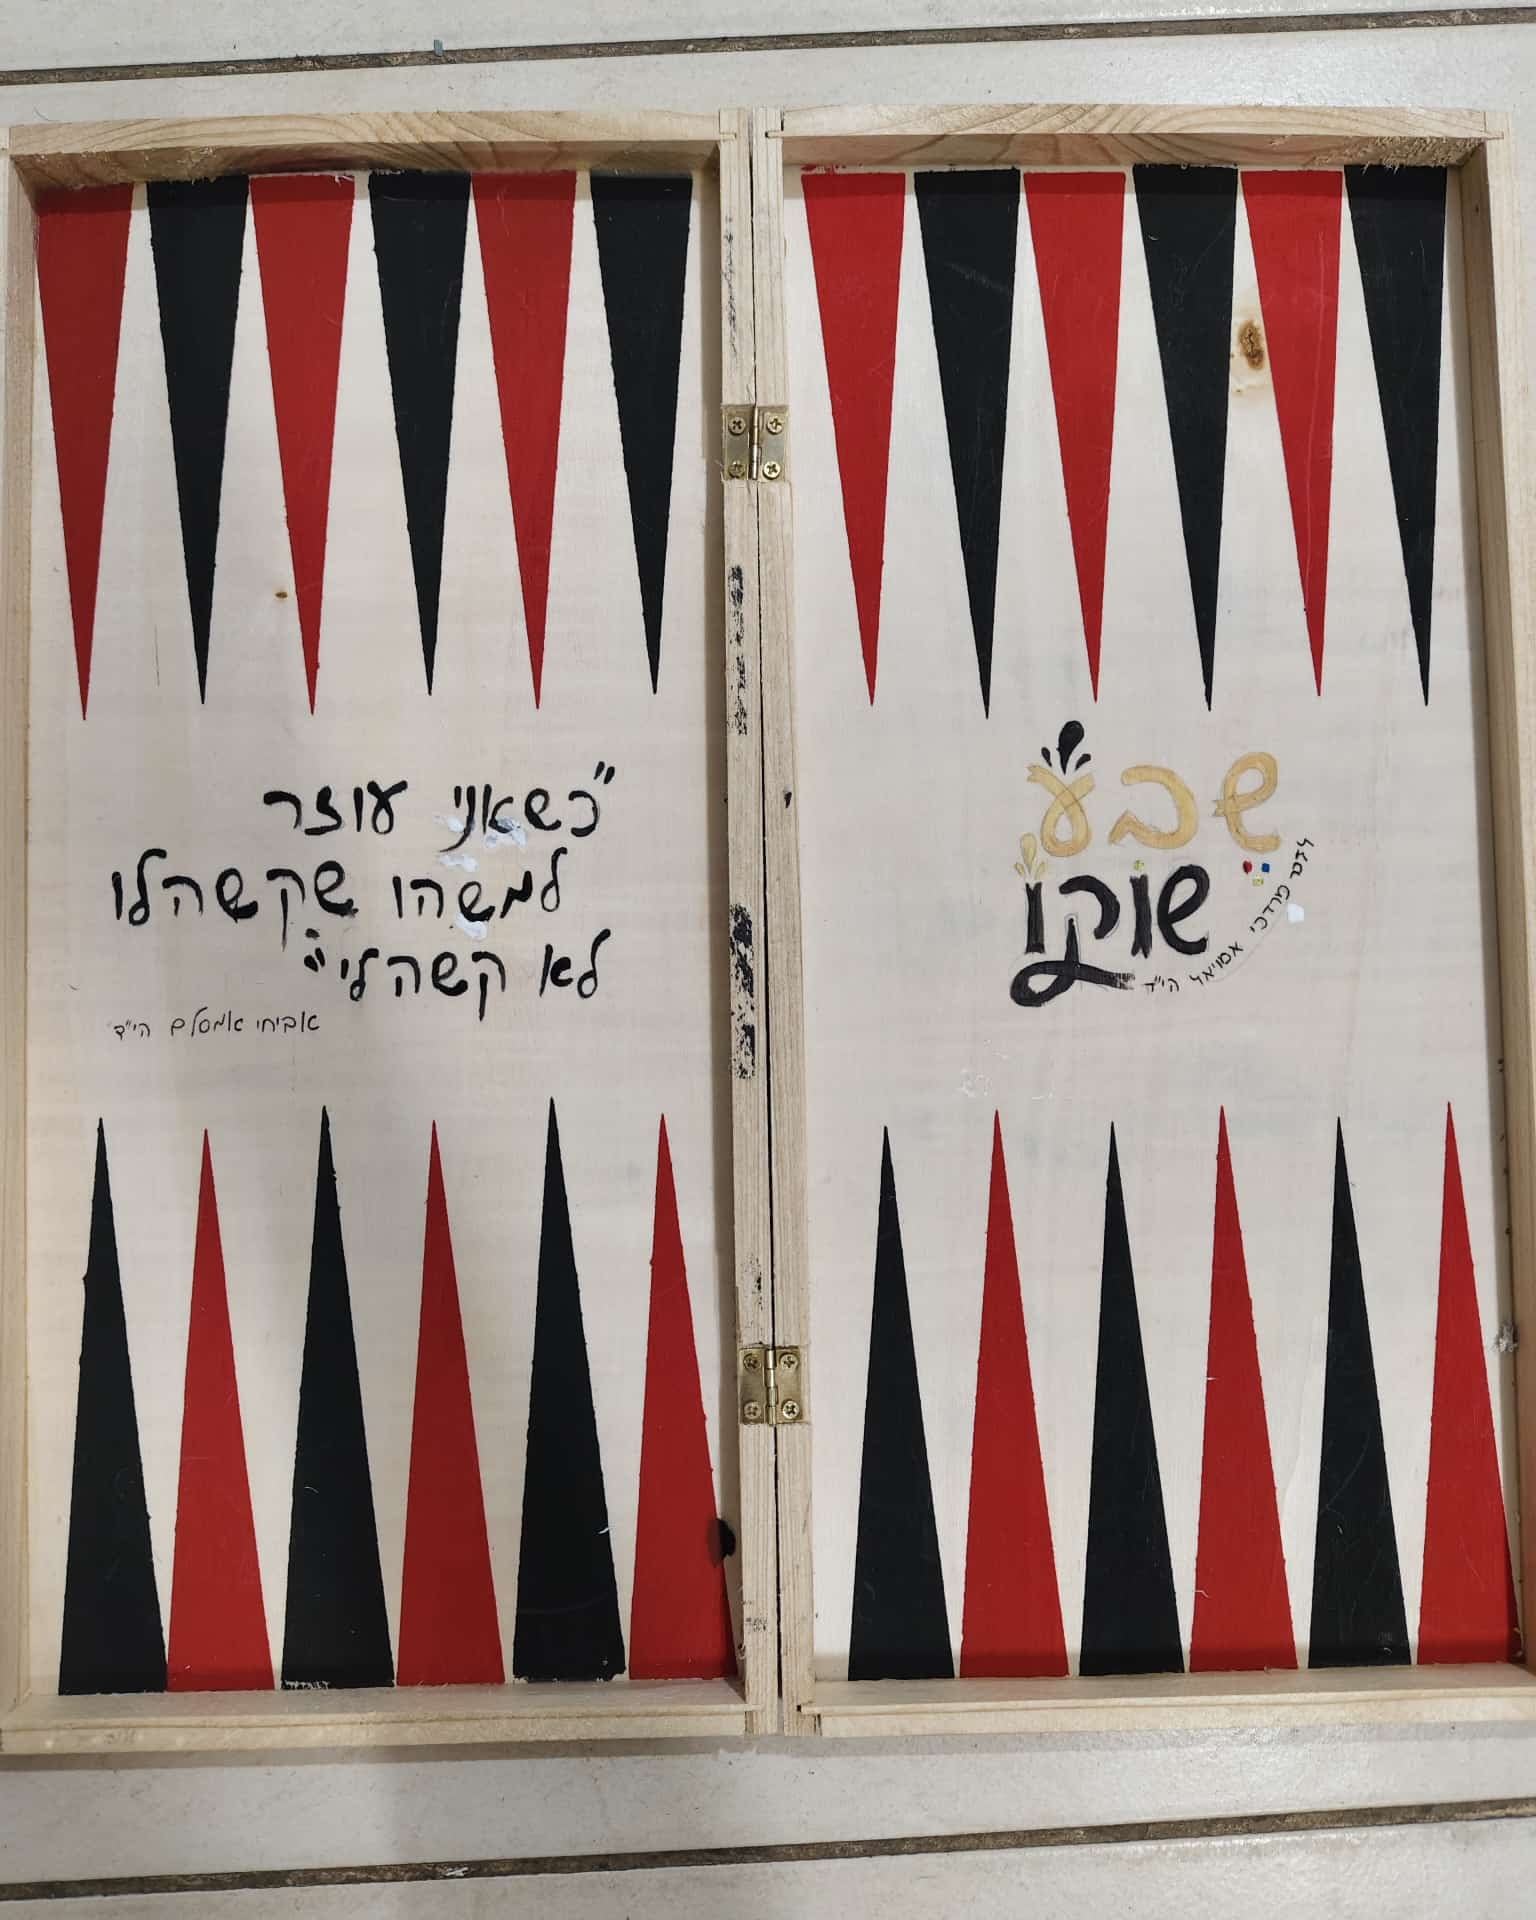 "כשאני עוזר
למישהו שקשה לו
לא קשה לי"
אביחי אמסלם הי"ד
שבע
שוקו
מרדכי אמויאל הי"ד